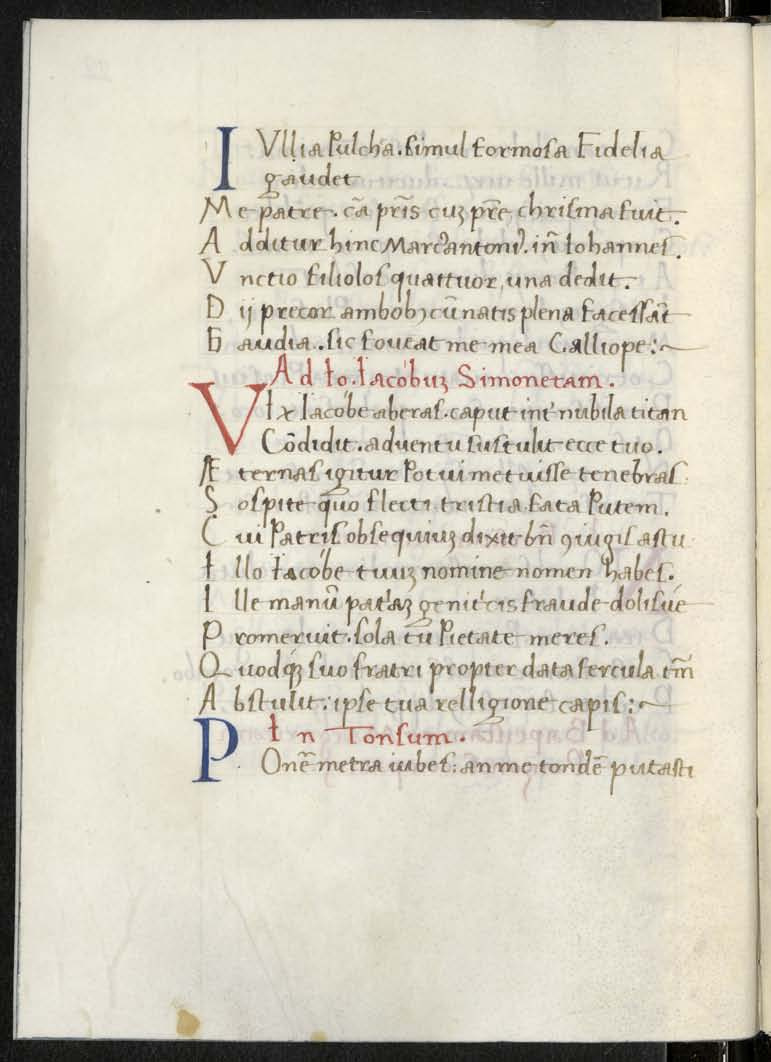 IVllia Pulcha. simul formosa Fidelia
gaudet
Me pātre. cā prīs cuȝ prē chrisma fuit.
Additur hinc Marc'antoni'. in̄ Iohannes.
Vnctio filiolos quattuor, una dedit.
Dij precor amboboꝫ cū natis plena facessāt
Gaudia. sic foueat me mea Calliope:~
Ad Io. Iacóbuȝ Simonetam.
VIx Iacóbe aberas. caput int' nubila titan
Cōdidit. aduentu sustulit ecce tuo.
Æternas igitur Potui metuisse tenebras.
Sospite quo flecti tristia fata Putem.
Cui Patris obsequiuȝ dixit bn̄ ꝯiugis astu
Illo Iacóbe tuuȝ nomine nomen habes.
Ille manū pat'aȝ genit'cis fraude dolisue
Promeruit. sola tu Pietate meres.
Quodqȝ suo fratri propter data fercula tm̄
Abstulit: ipse tua relligione capis:~
In Tonsum.
POnē metra iubes: an me tondē putasti